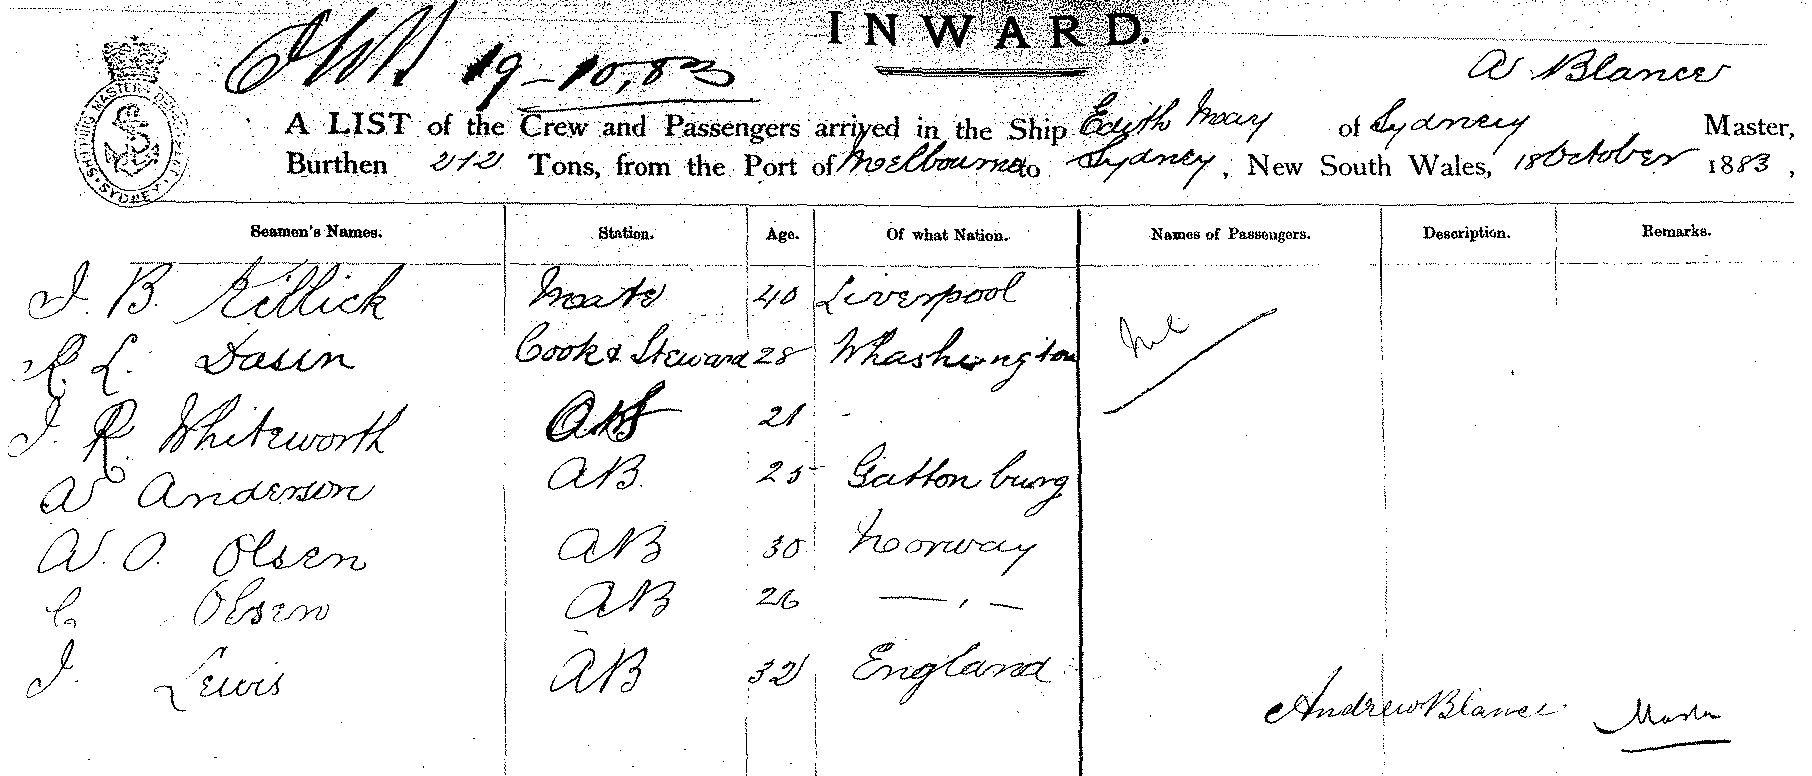 INWARD.
19-10.83
A Blance
A LIST of the Crew and Passengers arrived in the Ship Edith May of Sydney Master,
Burthen 212 Tons, from the Port of Melbourne to Sydney, New South Wales, 18 October 1883,
SHIPPING MASTER'S DEPARTMENT SYDNEY
Seamen's Names. Station. Age. Of what Nation. Names of Passengers. Description. Remarks.
J. B. Killick Mate 40 Liverpool
R. L. Dasin Cook & Steward 28 Whashington Nil
J. R. Whiteworth 21
A Anderson AB. 25 Gattonburg
A. O. Olsen AB 30 Norway
C Olsen AB 26 — , —
J. Lewis AB 32 England
Andrew Blance Master